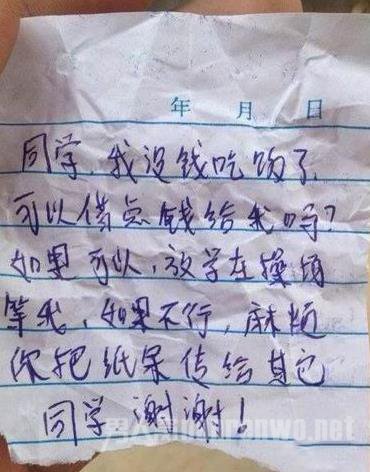 年 月 日
同学,我没钱吃饭了,
可以借点钱给我吗?
如果可以,放学在操场
等我,如果不行,麻烦
你把纸条传给其它
同学谢谢!